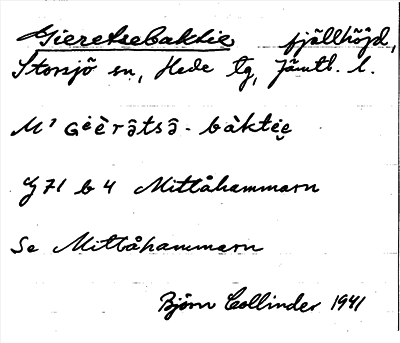 Gieretsebaktie fjällhöjd,
Storsjö sn, Hede tg, Jämtl. l.
M¹ Gėèrâtsâ-bàktiẹ
G 71 b 4 Mittåhammarn
Se Mittåhammarn
Björn Collinder 1941